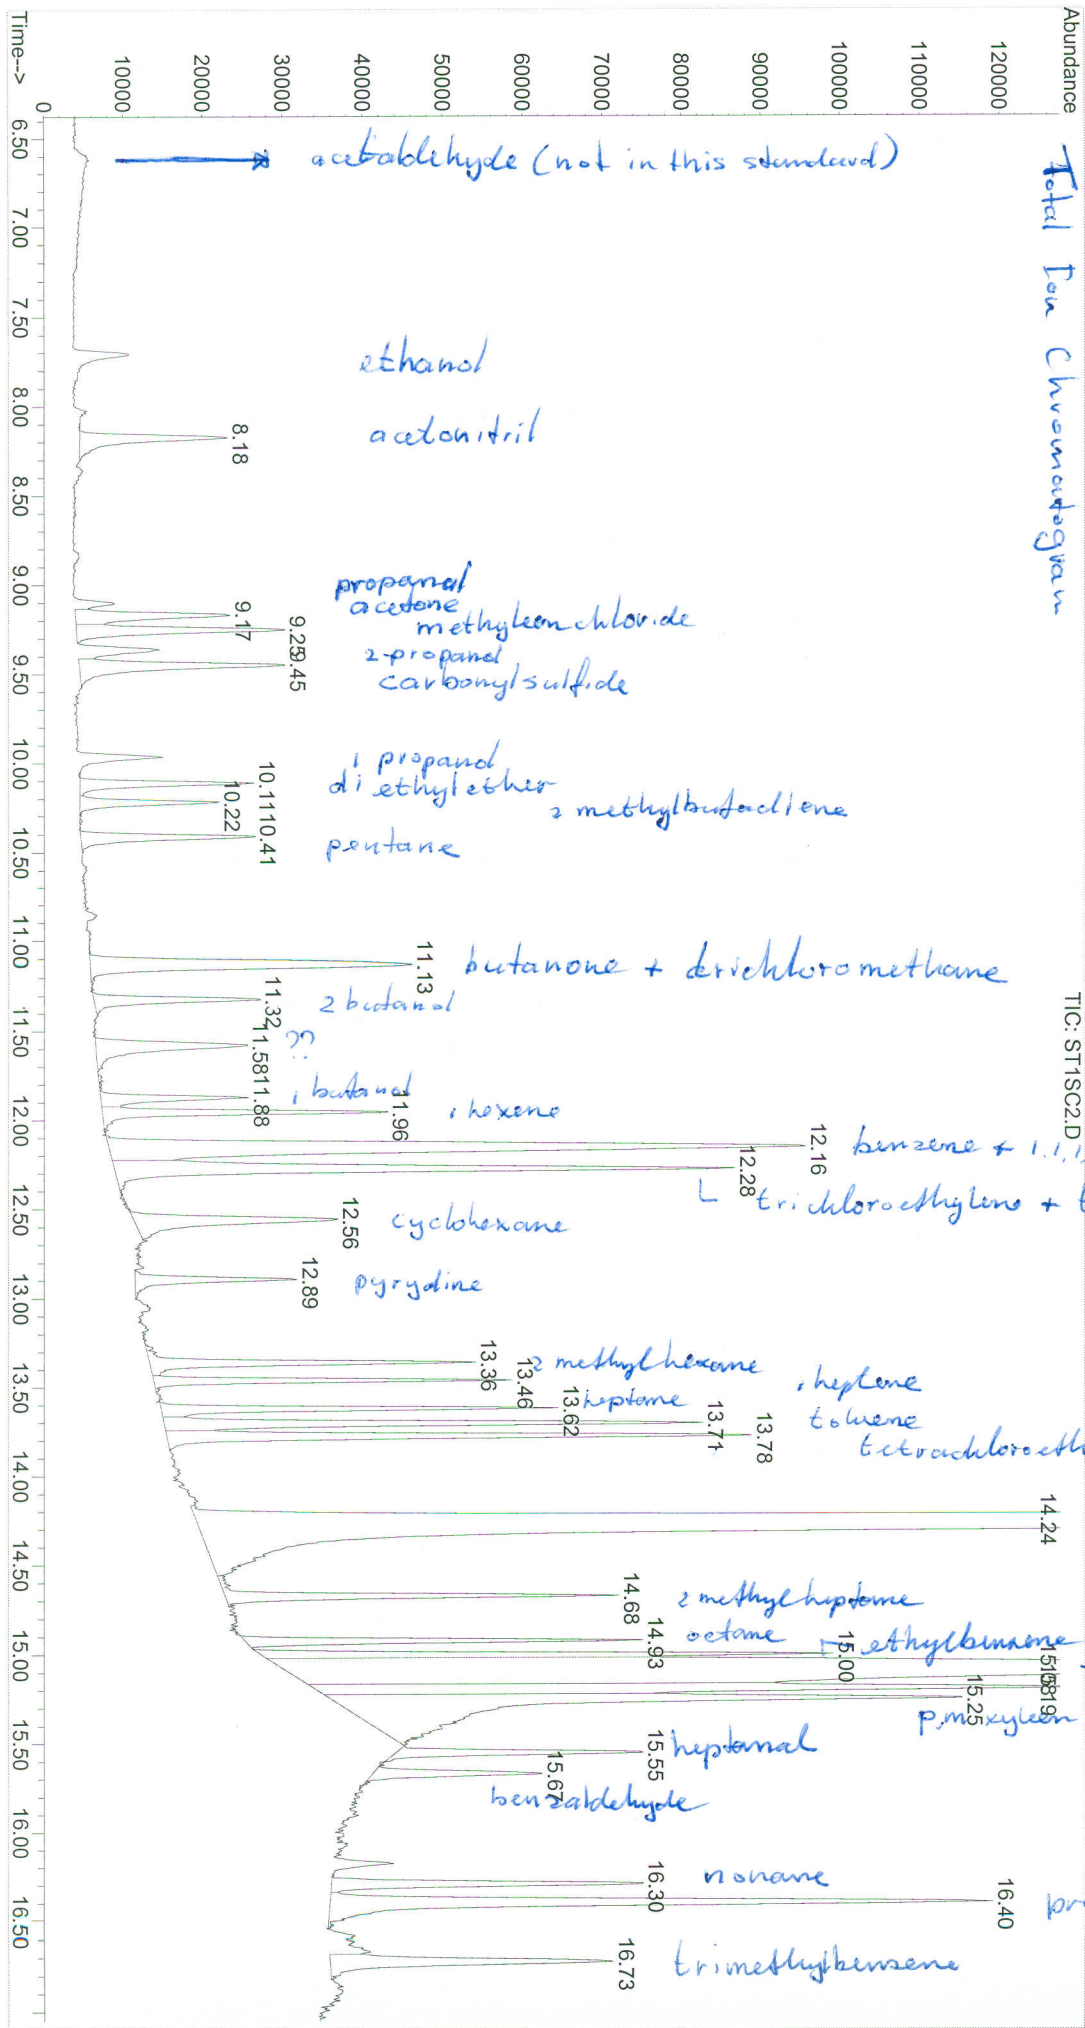 Abundance
Total Ion Chromatogram
TIC: ST1SC2.D
120000
110000
100000
90000
80000
70000
60000
50000
40000
30000
20000
10000
0
Time-->
6.50
7.00
7.50
8.00
8.50
9.00
9.50
10.00
10.50
11.00
11.50
12.00
12.50
13.00
13.50
14.00
14.50
15.00
15.50
16.00
16.50
acetaldehyde (not in this standard)
ethanol
8.18 acetonitril
propanal
9.17 acetone
9.25 methyleenchloride
2-propanol
9.45 carbonylsulfide
1 propanol
10.11 diethylether
10.22 2 methylbutadiene
10.41 pentane
11.13 butanone +
11.32 2 butanol
11.58 ??
11.88 1 butanol
11.96 1 hexene
12.16 benzene + 1.1.1
12.28 trichloroethylene + t
12.56 cyclohexane
12.89 pyrydine
13.36 2 methylhexane
13.46 1 heptene
13.62 heptane
13.71 toluene
13.78 tetrachloroeth
14.24
14.68 2 methylheptane
14.93 octane
15.00 ethylbenzene
15.19
15.25 p,m xyleen
15.55 heptanal
15.67 benzaldehyde
16.30 nonane
16.40 pr
16.73 trimethylbenzene